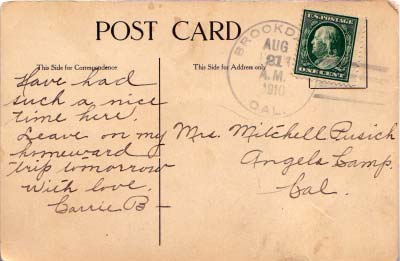 POST CARD
This Side for Correspondence
This Side for Address only
Have had
such a nice
time here.
Leave on my
homeward
trip tomorrow
With love.
Carrie B-
Mrs. Mitchell Pusich
Angels Camp.
Cal.
BROOKDALE
AUG
21
A.M.
1910
CAL.
U.S. POSTAGE
ONE CENT